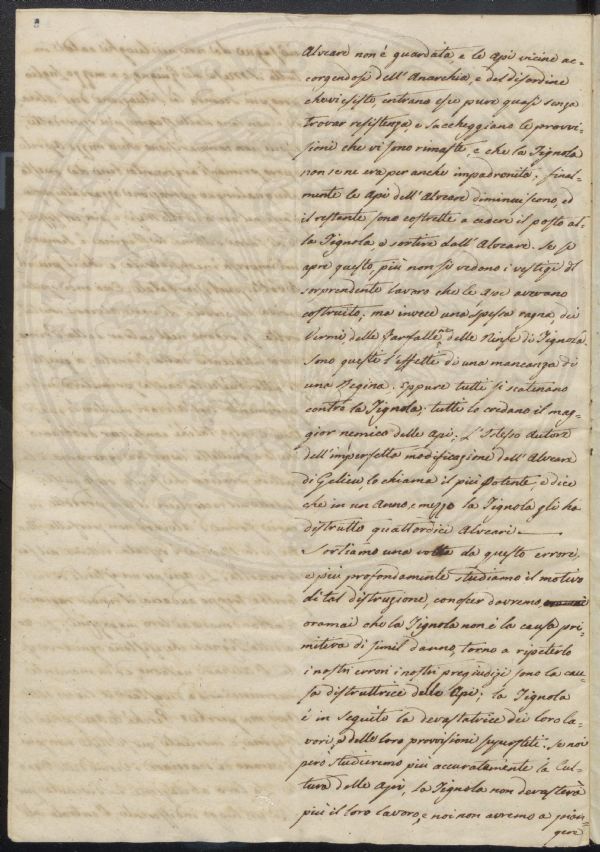 Alveare non é guardata e le Api vicine ac-
corgendosi dell'Anarchia, e del disordine
che vi esiste, entrano esse pure quasi senza
trovar resistenza, e saccheggiano le provvi-
sioni che vi sono rimaste, e che la Tignola
non se ne era per anche impadronita; final-
mente le Api dell'Alveare diminuiscono, ed
il restante sono costrette a cedere il posto al-
la Tignola, e sortire dall'Alveare. Se si
apre questo, più non si vedono i vestigi del
sorprendente lavoro che le Api avevano
costruito; ma invece una spessa ragna, dei
Vermi, delle Farfalle, delle Ninfe di Tignola.
Sono questi l'effetti di una mancanza di
una Regina. Eppure tutti si scatenano
contro la Tignola; tutti lo credano il mag-
gior nemico delle Api; L'Istesso Autore
dell'imperfetta modificazione dell'Alveare
di Gelieu, lo chiama il più potente, e dice
che in un Anno, e mezzo la Tignola gli ha
distrutto quattordici Alveari.
Sortiamo una volta da questo errore,
e più profondamente studiamo il motivo
di tal distruzione, conoscer dovremo,
oramai che la Tignola non é la causa pri-
mitiva di simil danno, torno a ripeterlo
i nostri errori i nostri pregiudizi sono la cau-
sa distruttrice delle Api; la Tignola
é in seguito la devastatrice dei loro la-
vori, e delle loro provvisioni superstiti. Se noi
però studieremo più accuratamente la Cul-
tura delle Api, la Tignola non devasterà
più il loro lavoro, e noi non avremo a pian-
gere